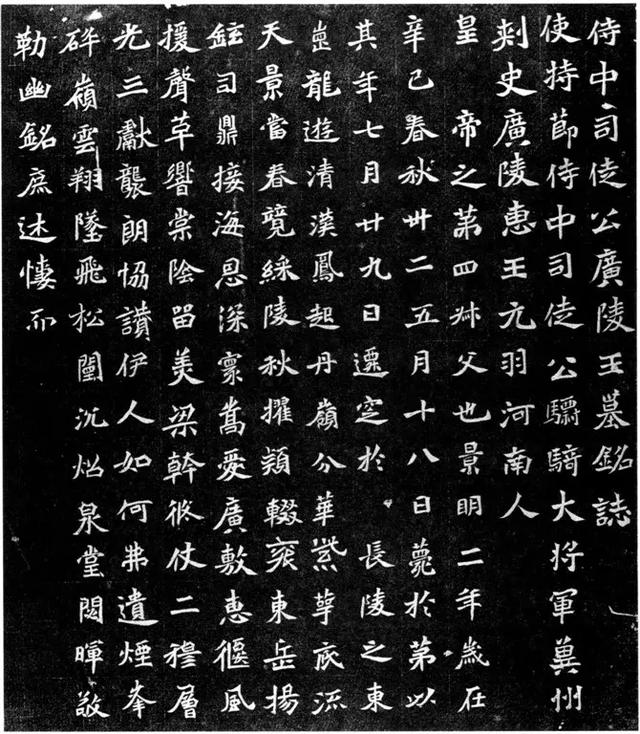 侍中司徒公廣陵王墓銘誌
使持節侍中司徒公驃騎大將軍冀州
刺史廣陵惠王元羽河南人
皇 帝之第四叔父也景明二年歲在
辛巳春秋卅二五月十八日薨於第以
其年七月廿九日遷窆於 長陵之東
崗龍遊清漢鳳起丹嶺分華紫萼底流
天景當春競綵陵秋擢穎輟袞東岳揚
鉉司鼎接海恩深寰嵩愛廣敷惠偃風
援聲草響棠陰留美梁幹攸仗二穆層
光三獻襲朗協讚伊人如何弗遺煙峯
碎嶺雲翔墜飛松闈沉炤泉堂閟暉敬
勒幽銘庶述悽而